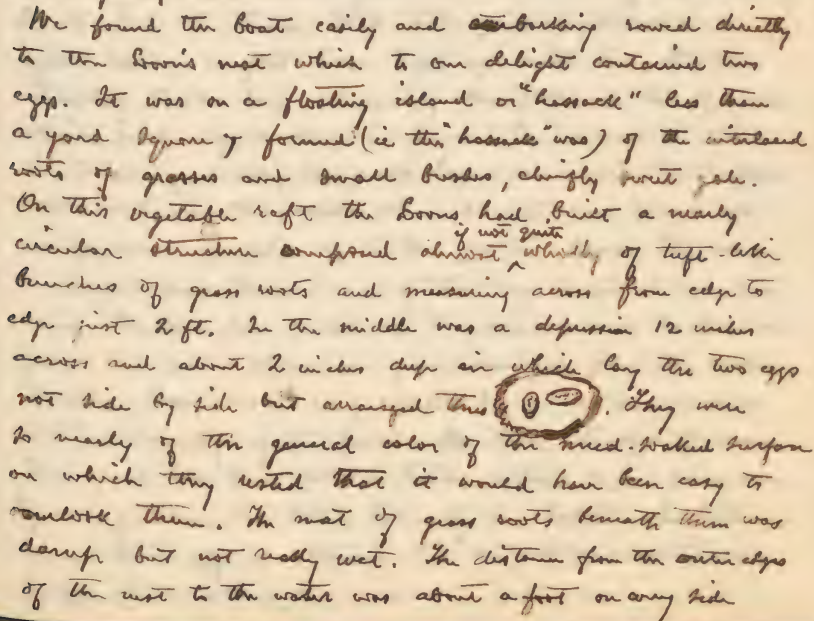 We found the boat easily and embarking rowed directly
to the Loon's nest which to our delight contained two
eggs. It was on a floating island or "hassack" less than
a yard square & formed (ie the "hassack" was) of the interlaced
roots of grasses and small bushes, chiefly sweet gale.
On this vegetable raft the Loons had built a nearly
circular structure composed almost if not quite wholly of tuft-like
bunches of grass roots and measuring across from edge to
edge just 2 ft. In the middle was a depression 12 inches
across and about 2 inches deep in which lay the two eggs
not side by side but arranged thus . They were
so nearly of the general color of the mud-soaked surface
on which they rested that it would have been easy to
overlook them. The mat of grass roots beneath them was
damp but not really wet. The distance from the outer edges
of the nest to the water was about a foot on every side